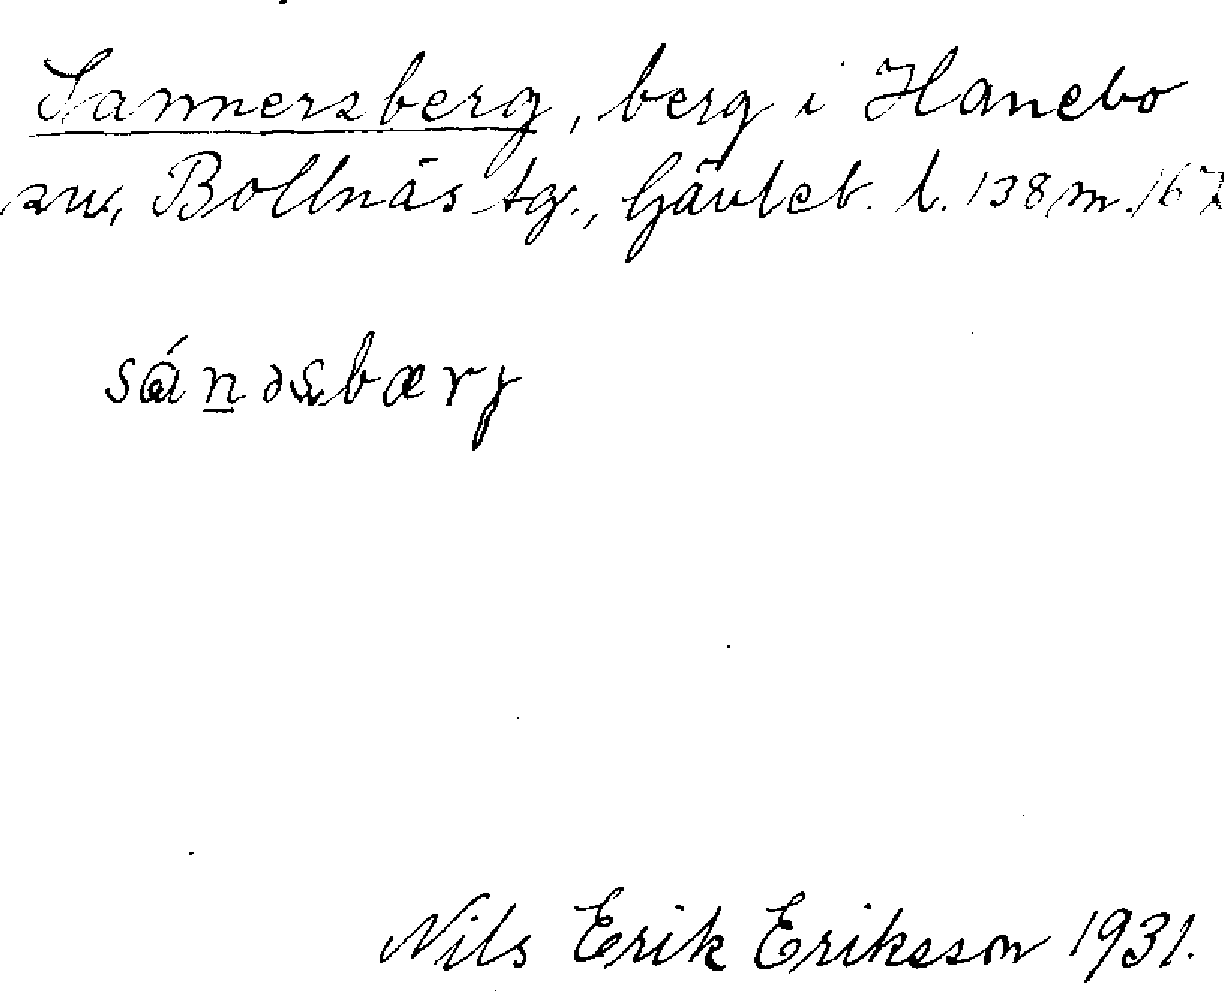 Sannersberg, berg i Hanebo
sn, Bollnäs tg., Gävleb. l. 138 m. 167
sánəsbærj
Nils Erik Eriksson 1931.